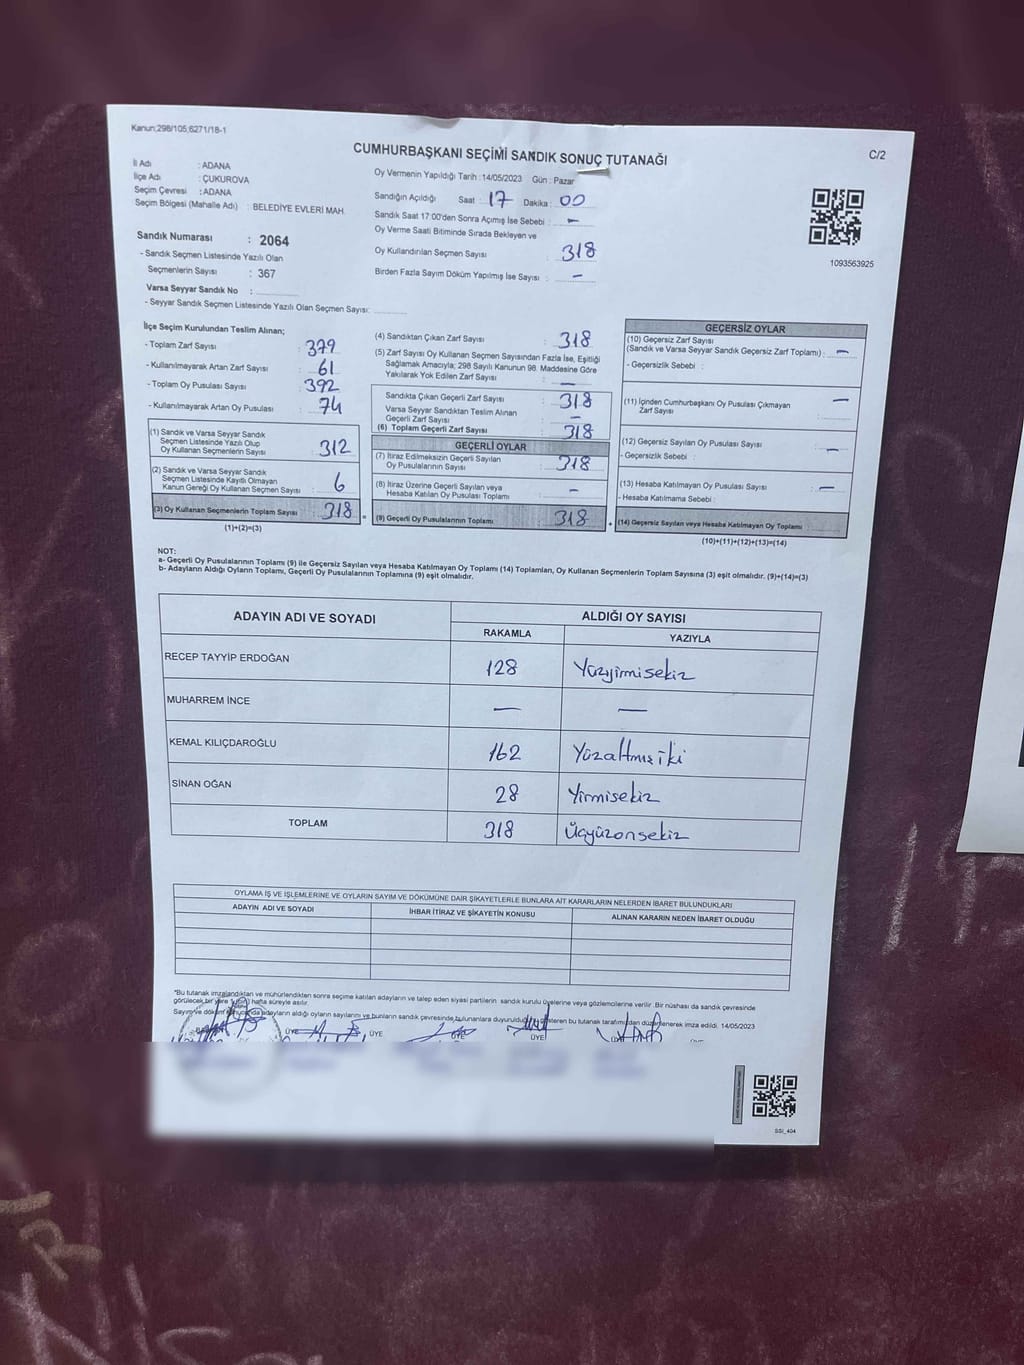 Kanun;298/105;6271/18-1
C/2
CUMHURBAŞKANI SEÇİMİ SANDIK SONUÇ TUTANAĞI
İl Adı : ADANA
İlçe Adı : ÇUKUROVA
Seçim Çevresi : ADANA
Seçim Bölgesi (Mahalle Adı) : BELEDİYE EVLERİ MAH.
Sandık Numarası : 2064
- Sandık Seçmen Listesinde Yazılı Olan
Seçmenlerin Sayısı : 367
Varsa Seyyar Sandık No :
- Seyyar Sandık Seçmen Listesinde Yazılı Olan Seçmen Sayısı:
Oy Vermenin Yapıldığı Tarih :14/05/2023 Gün : Pazar
Sandığın Açıldığı Saat : 17 Dakika : 00
Sandık Saat 17:00'den Sonra Açımış İse Sebebi : –
Oy Verme Saati Bitiminde Sırada Bekleyen ve
Oy Kullandırılan Seçmen Sayısı : 318
Birden Fazla Sayım Döküm Yapılmış İse Sayısı : –
1093563925
İlçe Seçim Kurulundan Teslim Alınan;
- Toplam Zarf Sayısı : 379
- Kullanılmayarak Artan Zarf Sayısı : 61
- Toplam Oy Pusulası Sayısı : 392
- Kullanılmayarak Artan Oy Pusulası : 74
(1) Sandık ve Varsa Seyyar Sandık
Seçmen Listesinde Yazılı Olup
Oy Kullanan Seçmenlerin Sayısı : 312
(2) Sandık ve Varsa Seyyar Sandık
Seçmen Listesinde Kayıtlı Olmayan
Kanun Gereği Oy Kullanan Seçmen Sayısı : 6
(3) Oy Kullanan Seçmenlerin Toplam Sayısı : 318
(1)+(2)=(3)
(4) Sandıktan Çıkan Zarf Sayısı : 318
(5) Zarf Sayısı Oy Kullanan Seçmen Sayısından Fazla İse, Eşitliği
Sağlamak Amacıyla; 298 Sayılı Kanunun 98. Maddesine Göre
Yakılarak Yok Edilen Zarf Sayısı : –
Sandıkta Çıkan Geçerli Zarf Sayısı : 318
Varsa Seyyar Sandıktan Teslim Alınan
Geçerli Zarf Sayısı : –
(6) Toplam Geçerli Zarf Sayısı : 318
GEÇERLİ OYLAR
(7) İtiraz Edilmeksizin Geçerli Sayılan
Oy Pusulalarının Sayısı : 318
(8) İtiraz Üzerine Geçerli Sayılan veya
Hesaba Katılan Oy Pusulası Toplamı : –
(9) Geçerli Oy Pusulalarının Toplamı : 318
GEÇERSİZ OYLAR
(10) Geçersiz Zarf Sayısı
(Sandık ve Varsa Seyyar Sandık Geçersiz Zarf Toplamı) : –
- Geçersizlik Sebebi :
(11) İçinden Cumhurbaşkanı Oy Pusulası Çıkmayan
Zarf Sayısı –
(12) Geçersiz Sayılan Oy Pusulası Sayısı : –
- Geçersizlik Sebebi :
(13) Hesaba Katılmayan Oy Pusulası Sayısı : –
- Hesaba Katılmama Sebebi :
(14) Geçersiz Sayılan veya Hesaba Katılmayan Oy Toplamı :
(10)+(11)+(12)+(13)=(14)
NOT:
a- Geçerli Oy Pusulalarının Toplamı (9) ile Geçersiz Sayılan veya Hesaba Katılmayan Oy Toplamı (14) Toplamları, Oy Kullanan Seçmenlerin Toplam Sayısına (3) eşit olmalıdır. (9)+(14)=(3)
b- Adayların Aldığı Oyların Toplamı, Geçerli Oy Pusulalarının Toplamına (9) eşit olmalıdır.
ADAYIN ADI VE SOYADI ALDIĞI OY SAYISI
RAKAMLA YAZIYLA
RECEP TAYYİP ERDOĞAN 128 Yüzyirmisekiz
MUHARREM İNCE — —
KEMAL KILIÇDAROĞLU 162 Yüzaltmışiki
SİNAN OĞAN 28 Yirmisekiz
TOPLAM 318 Üçyüzonsekiz
OYLAMA İŞ VE İŞLEMLERİNE VE OYLARIN SAYIM VE DÖKÜMÜNE DAİR ŞİKAYETLERLE BUNLARA AİT KARARLARIN NELERDEN İBARET BULUNDUKLARI
ADAYIN ADI VE SOYADI İHBAR İTİRAZ VE ŞİKAYETİN KONUSU ALINAN KARARIN NEDEN İBARET OLDUĞU
*Bu tutanak imzalandıktan ve mühürlendikten sonra seçime katılan adayların ve talep eden siyasi partilerin sandık kurulu üyelerine veya gözlemcilerine verilir. Bir nüshası da sandık çevresinde
görülecek bir yere 1 (bir) hafta süreyle asılır.
Sayım ve döküm sonucunda adayların aldığı oyların sayılarını ve bunların sandık çevresinde bulunanlara duyurulduğunu gösteren bu tutanak tarafımızdan düzenlenerek imza edildi. 14/05/2023
ÜYE ÜYE ÜYE ÜYE
SSİ_404